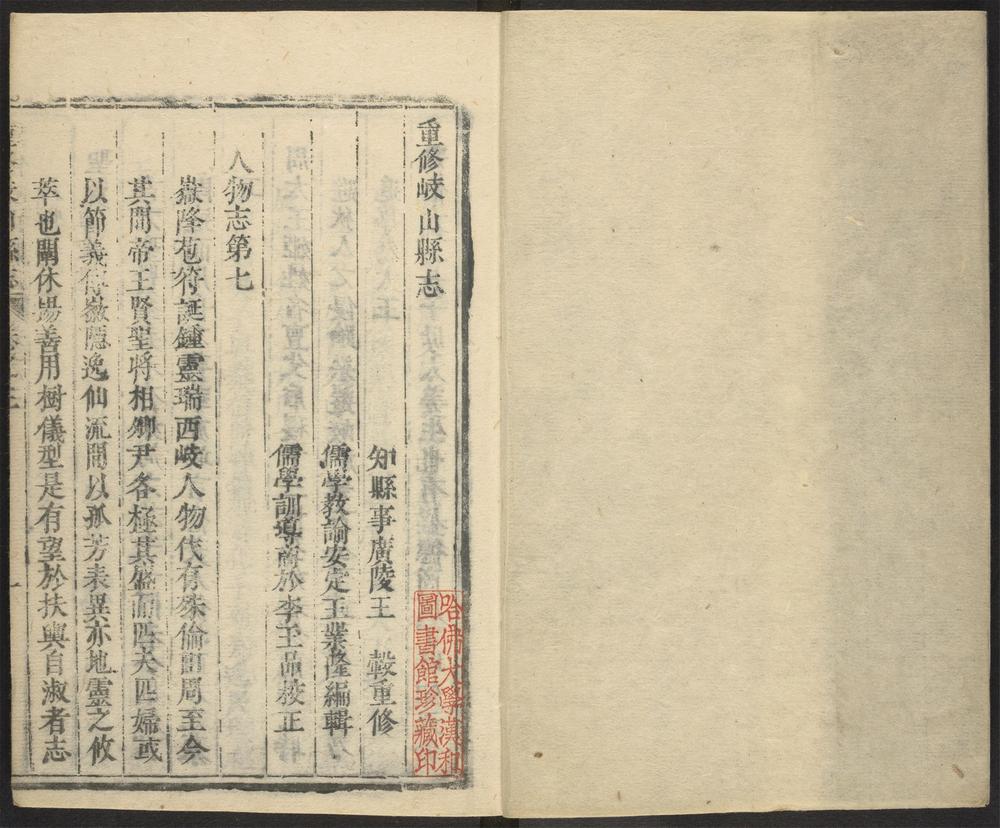 重修岐山縣志
知縣事廣陵王 轂重修
儒學教諭安定王業隆編輯
儒學訓導商於李王品校正
人物志第七
嶽降苞符誕鍾靈瑞西岐人物代有殊倫溯周至今
其間帝王賢聖將相卿尹各極其盛而匹夫匹婦或
以節義待徽隱逸仙流間以孤芳表異亦地靈之攸
萃也闡休揚善用樹儀型是有望於扶輿自淑者志
哈佛大學漢和
圖書館珍藏印